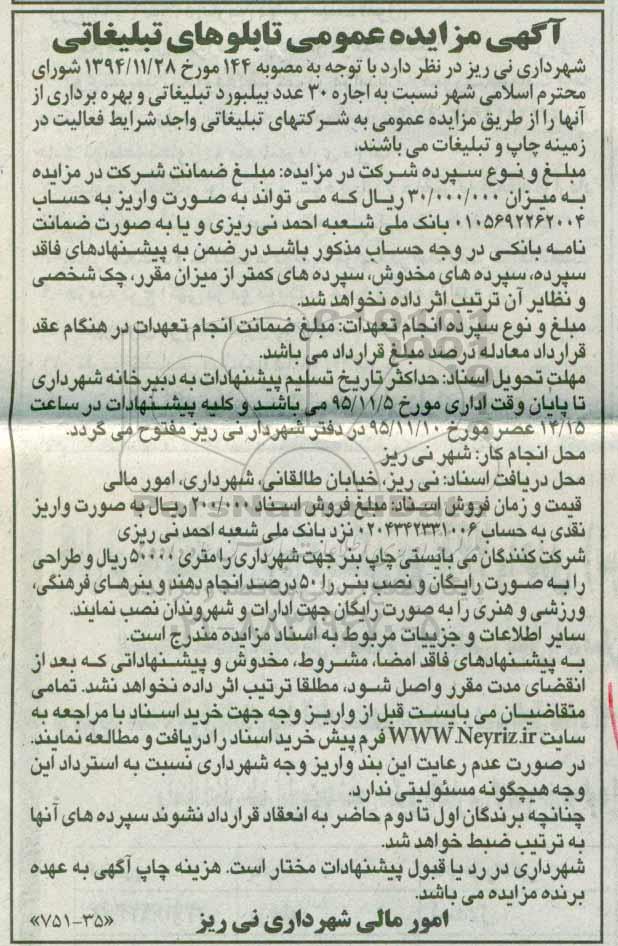 آگهی مزایده عمومی تابلوهای تبلیغاتی
شهرداری نی ریز در نظر دارد با توجه به مصوبه ۱۴۴ مورخ ۱۳۹۴/۱۱/۲۸ شورای
محترم اسلامی شهر نسبت به اجاره ۳۰ عدد بیلبورد تبلیغاتی و بهره برداری از
آنها را از طریق مزایده عمومی به شرکتهای تبلیغاتی واجد شرایط فعالیت در
زمینه چاپ و تبلیغات می باشند.
مبلغ و نوع سپرده شرکت در مزایده: مبلغ ضمانت شرکت در مزایده
به میزان ۳۰/۰۰۰/۰۰۰ ریال که می تواند به صورت واریز به حساب
۰۱۰۵۶۹۲۲۶۲۰۰۴ بانک ملی شعبه احمد نی ریزی و یا به صورت ضمانت
نامه بانکی در وجه حساب مذکور باشد در ضمن به پیشنهادهای فاقد
سپرده، سپرده های مخدوش، سپرده های کمتر از میزان مقرر، چک شخصی
و نظایر آن ترتیب اثر داده نخواهد شد.
مبلغ و نوع سپرده انجام تعهدات: مبلغ ضمانت انجام تعهدات در هنگام عقد
قرارداد معادل ده درصد مبلغ قرارداد می باشد.
مهلت تحویل اسناد: حداکثر تاریخ تسلیم پیشنهادات به دبیرخانه شهرداری
تا پایان وقت اداری مورخ ۹۵/۱۱/۵ می باشد و کلیه پیشنهادات در ساعت
۱۴/۱۵ عصر مورخ ۹۵/۱۱/۱۰ در دفتر شهردار نی ریز مفتوح می گردد.
محل انجام کار: شهر نی ریز
محل دریافت اسناد: نی ریز، خیابان طالقانی، شهرداری، امور مالی
قیمت و زمان فروش اسناد: مبلغ فروش اسناد ۲۰۰/۰۰۰ ریال به صورت واریز
نقدی به حساب ۰۲۰۴۳۴۲۳۳۱۰۰۶ نزد بانک ملی شعبه احمد نی ریزی
شرکت کنندگان می بایستی چاپ بنر جهت شهرداری را متری ۵۰۰۰۰ ریال و طراحی
را به صورت رایگان و نصب بنر را ۵۰ درصد انجام دهند و بنرهای فرهنگی،
ورزشی و هنری را به صورت رایگان جهت ادارات و شهروندان نصب نمایند.
سایر اطلاعات و جزییات مربوط به اسناد مزایده مندرج است.
به پیشنهادهای فاقد امضا، مشروط، مخدوش و پیشنهاداتی که بعد از
انقضای مدت مقرر واصل شود، مطلقا ترتیب اثر داده نخواهد نشد. تمامی
متقاضیان می بایست قبل از واریز وجه جهت خرید اسناد با مراجعه به
سایت WWW.Neyriz.ir فرم پیش خرید اسناد را دریافت و مطالعه نمایند.
در صورت عدم رعایت این بند واریز وجه شهرداری نسبت به استرداد این
وجه هیچگونه مسئولیتی ندارد.
چنانچه برندگان اول تا دوم حاضر به انعقاد قرارداد نشوند سپرده های آنها
به ترتیب ضبط خواهد شد.
شهرداری در رد یا قبول پیشنهادات مختار است. هزینه چاپ آگهی به عهده
برنده مزایده می باشد.
امور مالی شهرداری نی ریز
«۷۵۱-۳۵»